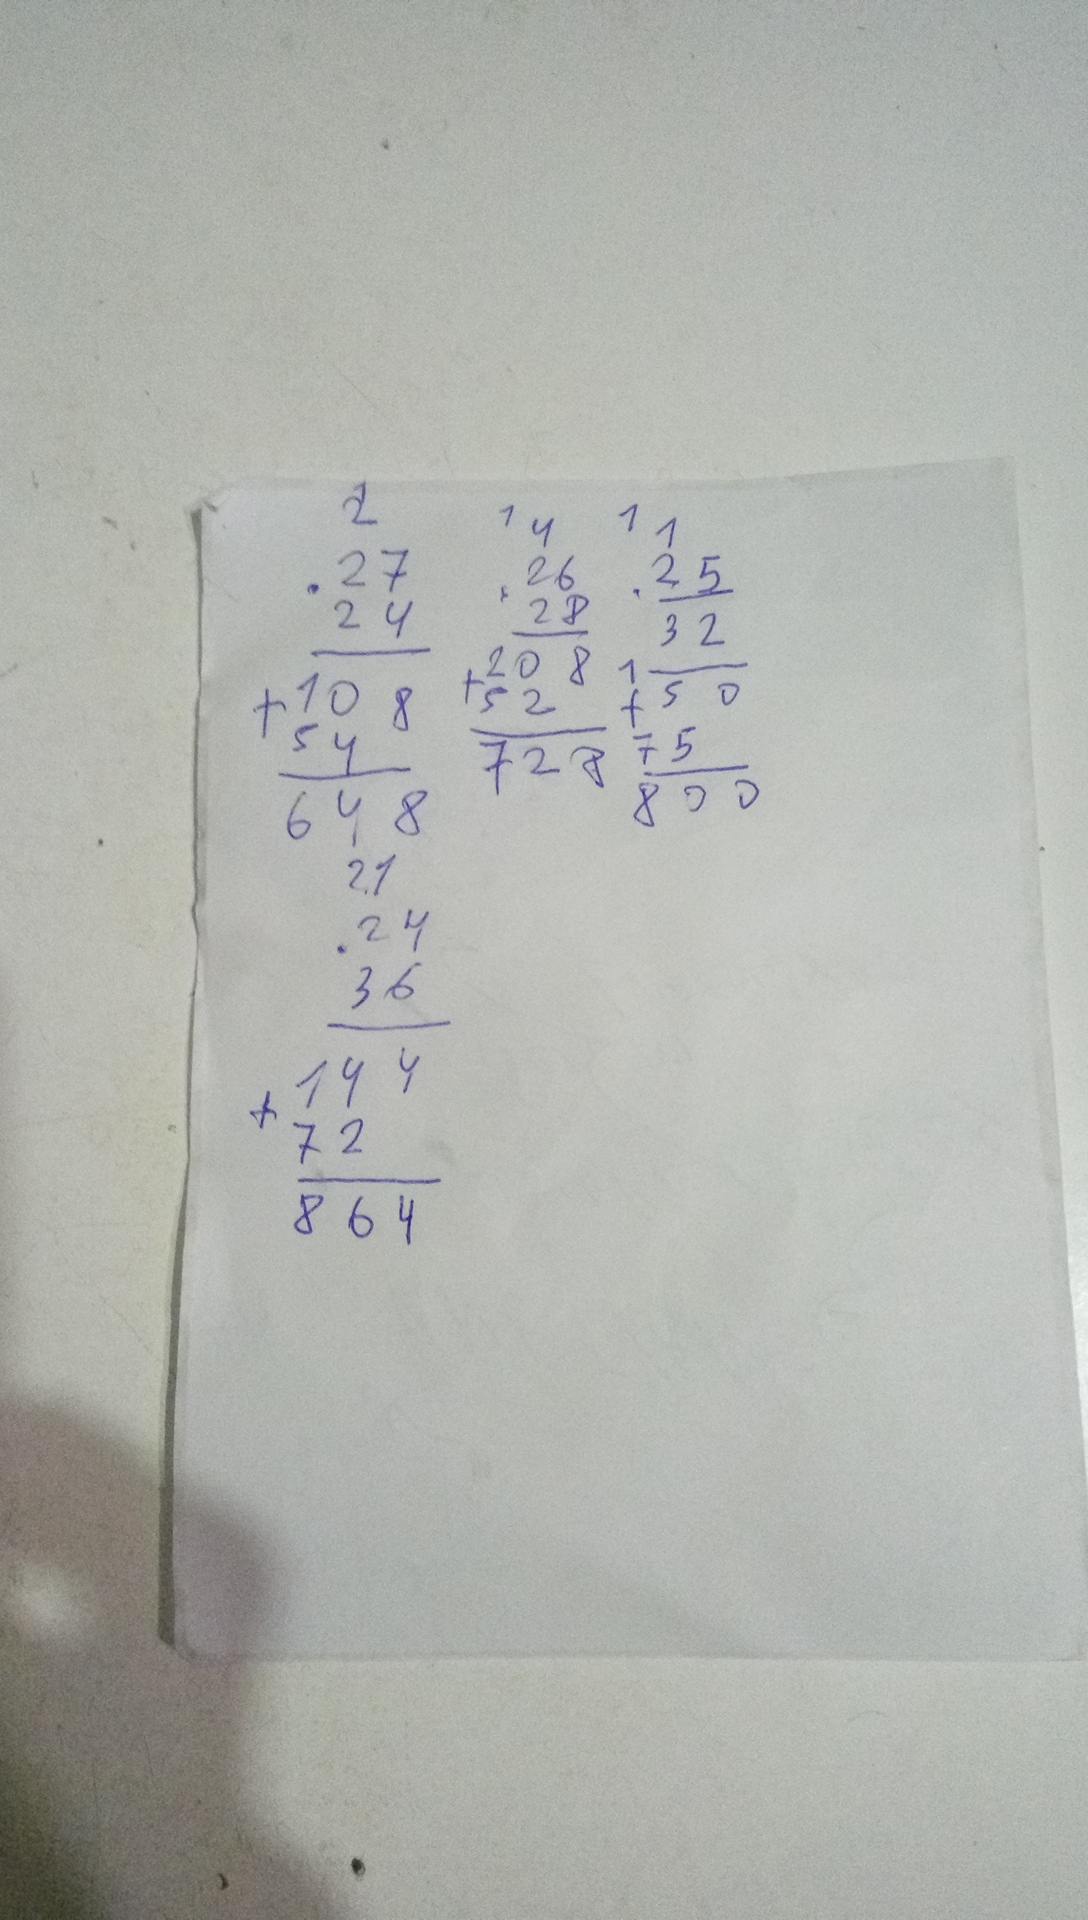 2
.27
24
+108
54
648
1 4
.26
28
+208
52
728
1 1
.25
32
+150
75
800
21
.24
36
+144
72
864